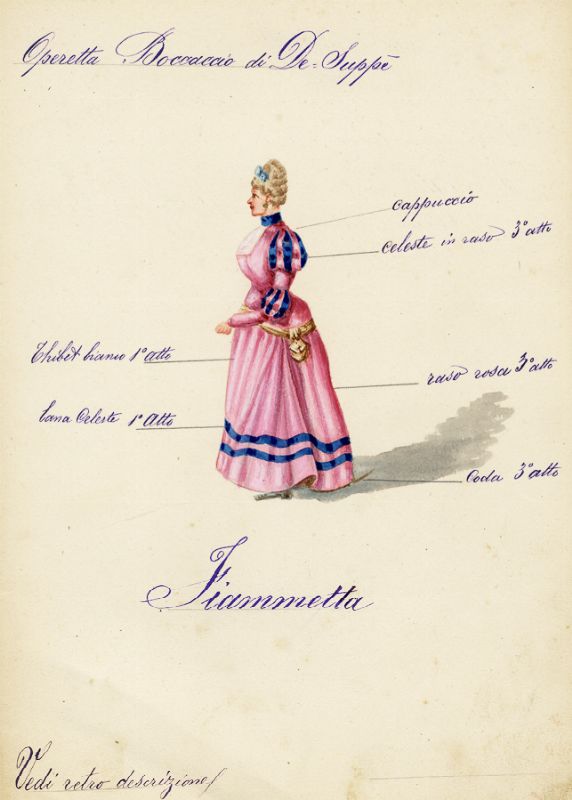 Operetta Boccaccio di De-Suppè
cappuccio
celeste in raso 3º atto
Thibet bianco 1º atto
raso rosa 3º atto
lana Celeste 1º atto
Coda 3º atto
Fiammetta
Vedi retro descrizione